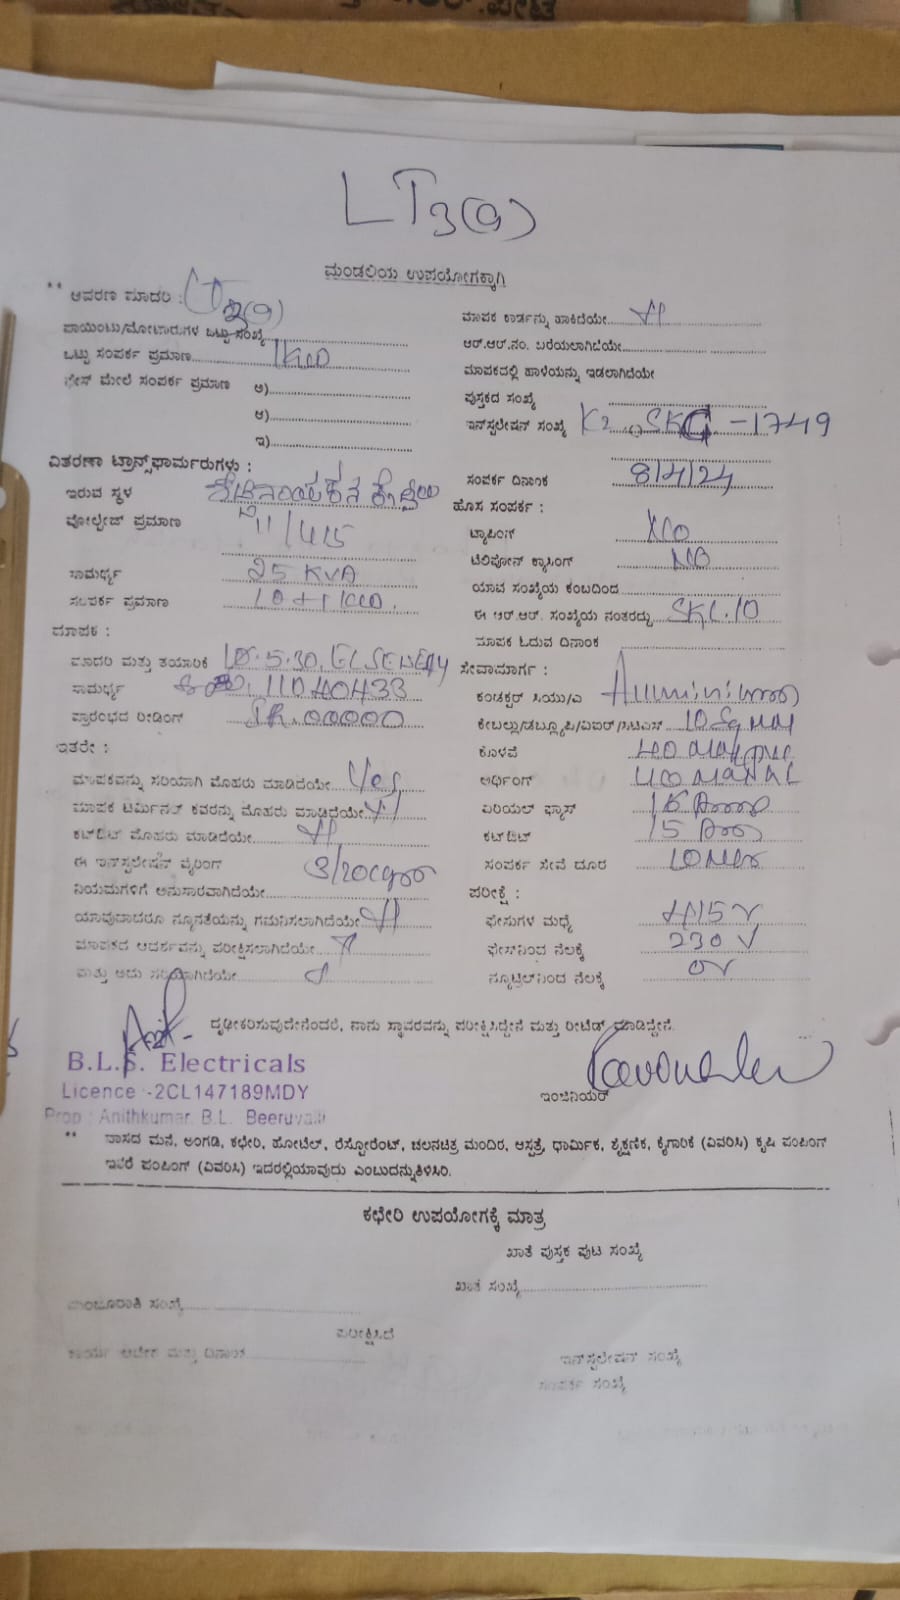 LT3(a)
ಮಂಡಲಿಯ ಉಪಯೋಗಕ್ಕಾಗಿ
** ಆವರಣ ಮಾದರಿ : LT 3(a)
ಪಾಯಿಂಟು/ಮೋಟಾರುಗಳ ಒಟ್ಟು ಸಂಖ್ಯೆ
ಒಟ್ಟು ಸಂಪರ್ಕ ಪ್ರಮಾಣ 1KW
ಫೇಸ್ ಮೇಲೆ ಸಂಪರ್ಕ ಪ್ರಮಾಣ ಅ)
ಆ)
ಇ)
ವಿತರಣಾ ಟ್ರಾನ್ಸ್‌ಫಾರ್ಮರುಗಳು :
ಇರುವ ಸ್ಥಳ
ವೋಲ್ಟೇಜ್ ಪ್ರಮಾಣ 11/415
ಸಾಮರ್ಥ್ಯ 25 KVA
ಸಂಪರ್ಕ ಪ್ರಮಾಣ
ಮಾಪಕ :
ಮಾದರಿ ಮತ್ತು ತಯಾರಿಕೆ
ಸಾಮರ್ಥ್ಯ 11040433
ಪ್ರಾರಂಭದ ರೀಡಿಂಗ್ IR. 00000
ಇತರೇ :
ಮಾಪಕವನ್ನು ಸರಿಯಾಗಿ ಮೊಹರು ಮಾಡಿದೆಯೇ Yes
ಮಾಪಕ ಟರ್ಮಿನಲ್ ಕವರನ್ನು ಮೊಹರು ಮಾಡಿದೆಯೇ
ಕಟ್‌ಔಟ್ ಮೊಹರು ಮಾಡಿದೆಯೇ
ಈ ಇನ್‌ಸ್ಟಲೇಷನ್ ವೈರಿಂಗ್
ನಿಯಮಗಳಿಗೆ ಅನುಸಾರವಾಗಿದೆಯೇ
ಯಾವುದಾದರೂ ನ್ಯೂನತೆಯನ್ನು ಗಮನಿಸಲಾಗಿದೆಯೇ
ಮಾಪಕದ ಆದರ್ಶವನ್ನು ಪರೀಕ್ಷಿಸಲಾಗಿದೆಯೇ
ಮತ್ತು ಅದು ಸರಿಯಾಗಿದೆಯೇ
ಮಾಪಕ ಕಾರ್ಡನ್ನು ಹಾಕಿದೆಯೇ
ಆರ್.ಆರ್.ನಂ. ಬರೆಯಲಾಗಿದೆಯೇ
ಮಾಪಕದಲ್ಲಿ ಹಾಳೆಯನ್ನು ಇಡಲಾಗಿದೆಯೇ
ಪುಸ್ತಕದ ಸಂಖ್ಯೆ
ಇನ್‌ಸ್ಟಲೇಷನ್ ಸಂಖ್ಯೆ K2 SKG -1749
ಸಂಪರ್ಕ ದಿನಾಂಕ 8/4/24
ಹೊಸ ಸಂಪರ್ಕ :
ಟ್ಯಾಪಿಂಗ್ NO
ಟೆಲಿಫೋನ್ ಕ್ರಾಸಿಂಗ್ NO
ಯಾವ ಸಂಖ್ಯೆಯ ಕಂಬದಿಂದ
ಈ ಆರ್.ಆರ್. ಸಂಖ್ಯೆಯ ನಂತರದ್ದು SKL.10
ಮಾಪಕ ಓದುವ ದಿನಾಂಕ
ಸೇವಾಮಾರ್ಗ :
ಕಂಡಕ್ಟರ್ ಸಿಯು/ಎ
ಕೇಬಲ್ಲು/ಡಬ್ಲ್ಯೂಪಿ/ಐಐಆರ್/ಸಿಟಿಎಸ್ 10 Sq MM
ಕೊಳವೆ
ಅರ್ಥಿಂಗ್
ಏರಿಯಲ್ ಫ್ಯೂಸ್
ಕಟ್‌ಔಟ್
ಸಂಪರ್ಕ ಸೇವೆ ದೂರ
ಪರೀಕ್ಷೆ :
ಫೇಸುಗಳ ಮಧ್ಯೆ 415 V
ಫೇಸ್‌ನಿಂದ ನೆಲಕ್ಕೆ 230 V
ನ್ಯೂಟ್ರಲ್‌ನಿಂದ ನೆಲಕ್ಕೆ 0V
ದೃಢೀಕರಿಸುವುದೇನೆಂದರೆ, ನಾನು ಸ್ಥಾವರವನ್ನು ಪರೀಕ್ಷಿಸಿದ್ದೇನೆ ಮತ್ತು ರೀಟೆಡ್ ಮಾಡಿದ್ದೇನೆ.
B.L.S. Electricals
Licence :-2CL147189MDY
Prop : Anithkumar. B.L. Beeruvalli
ಇಂಜಿನಿಯರ್
** ವಾಸದ ಮನೆ, ಅಂಗಡಿ, ಕಛೇರಿ, ಹೋಟೆಲ್, ರೆಸ್ಟೋರೆಂಟ್, ಚಲನಚಿತ್ರ ಮಂದಿರ, ಆಸ್ಪತ್ರೆ, ಧಾರ್ಮಿಕ, ಶೈಕ್ಷಣಿಕ, ಕೈಗಾರಿಕೆ (ವಿವರಿಸಿ) ಕೃಷಿ ಪಂಪಿಂಗ್
ಇತರೆ ಪಂಪಿಂಗ್ (ವಿವರಿಸಿ) ಇದರಲ್ಲಿಯಾವುದು ಎಂಬುದನ್ನುತಿಳಿಸಿರಿ.
ಕಛೇರಿ ಉಪಯೋಗಕ್ಕೆ ಮಾತ್ರ
ಖಾತೆ ಪುಸ್ತಕ ಪುಟ ಸಂಖ್ಯೆ
ಖಾತೆ ಸಂಖ್ಯೆ
ಮಂಜೂರಾತಿ ಸಂಖ್ಯೆ
ಪರೀಕ್ಷಿಸಿದೆ
ಕಾರ್ಯ ಆದೇಶ ಮತ್ತು ದಿನಾಂಕ
ಇನ್‌ಸ್ಟಲೇಷನ್ ಸಂಖ್ಯೆ
ಸಂಪರ್ಕ ಸಂಖ್ಯೆ